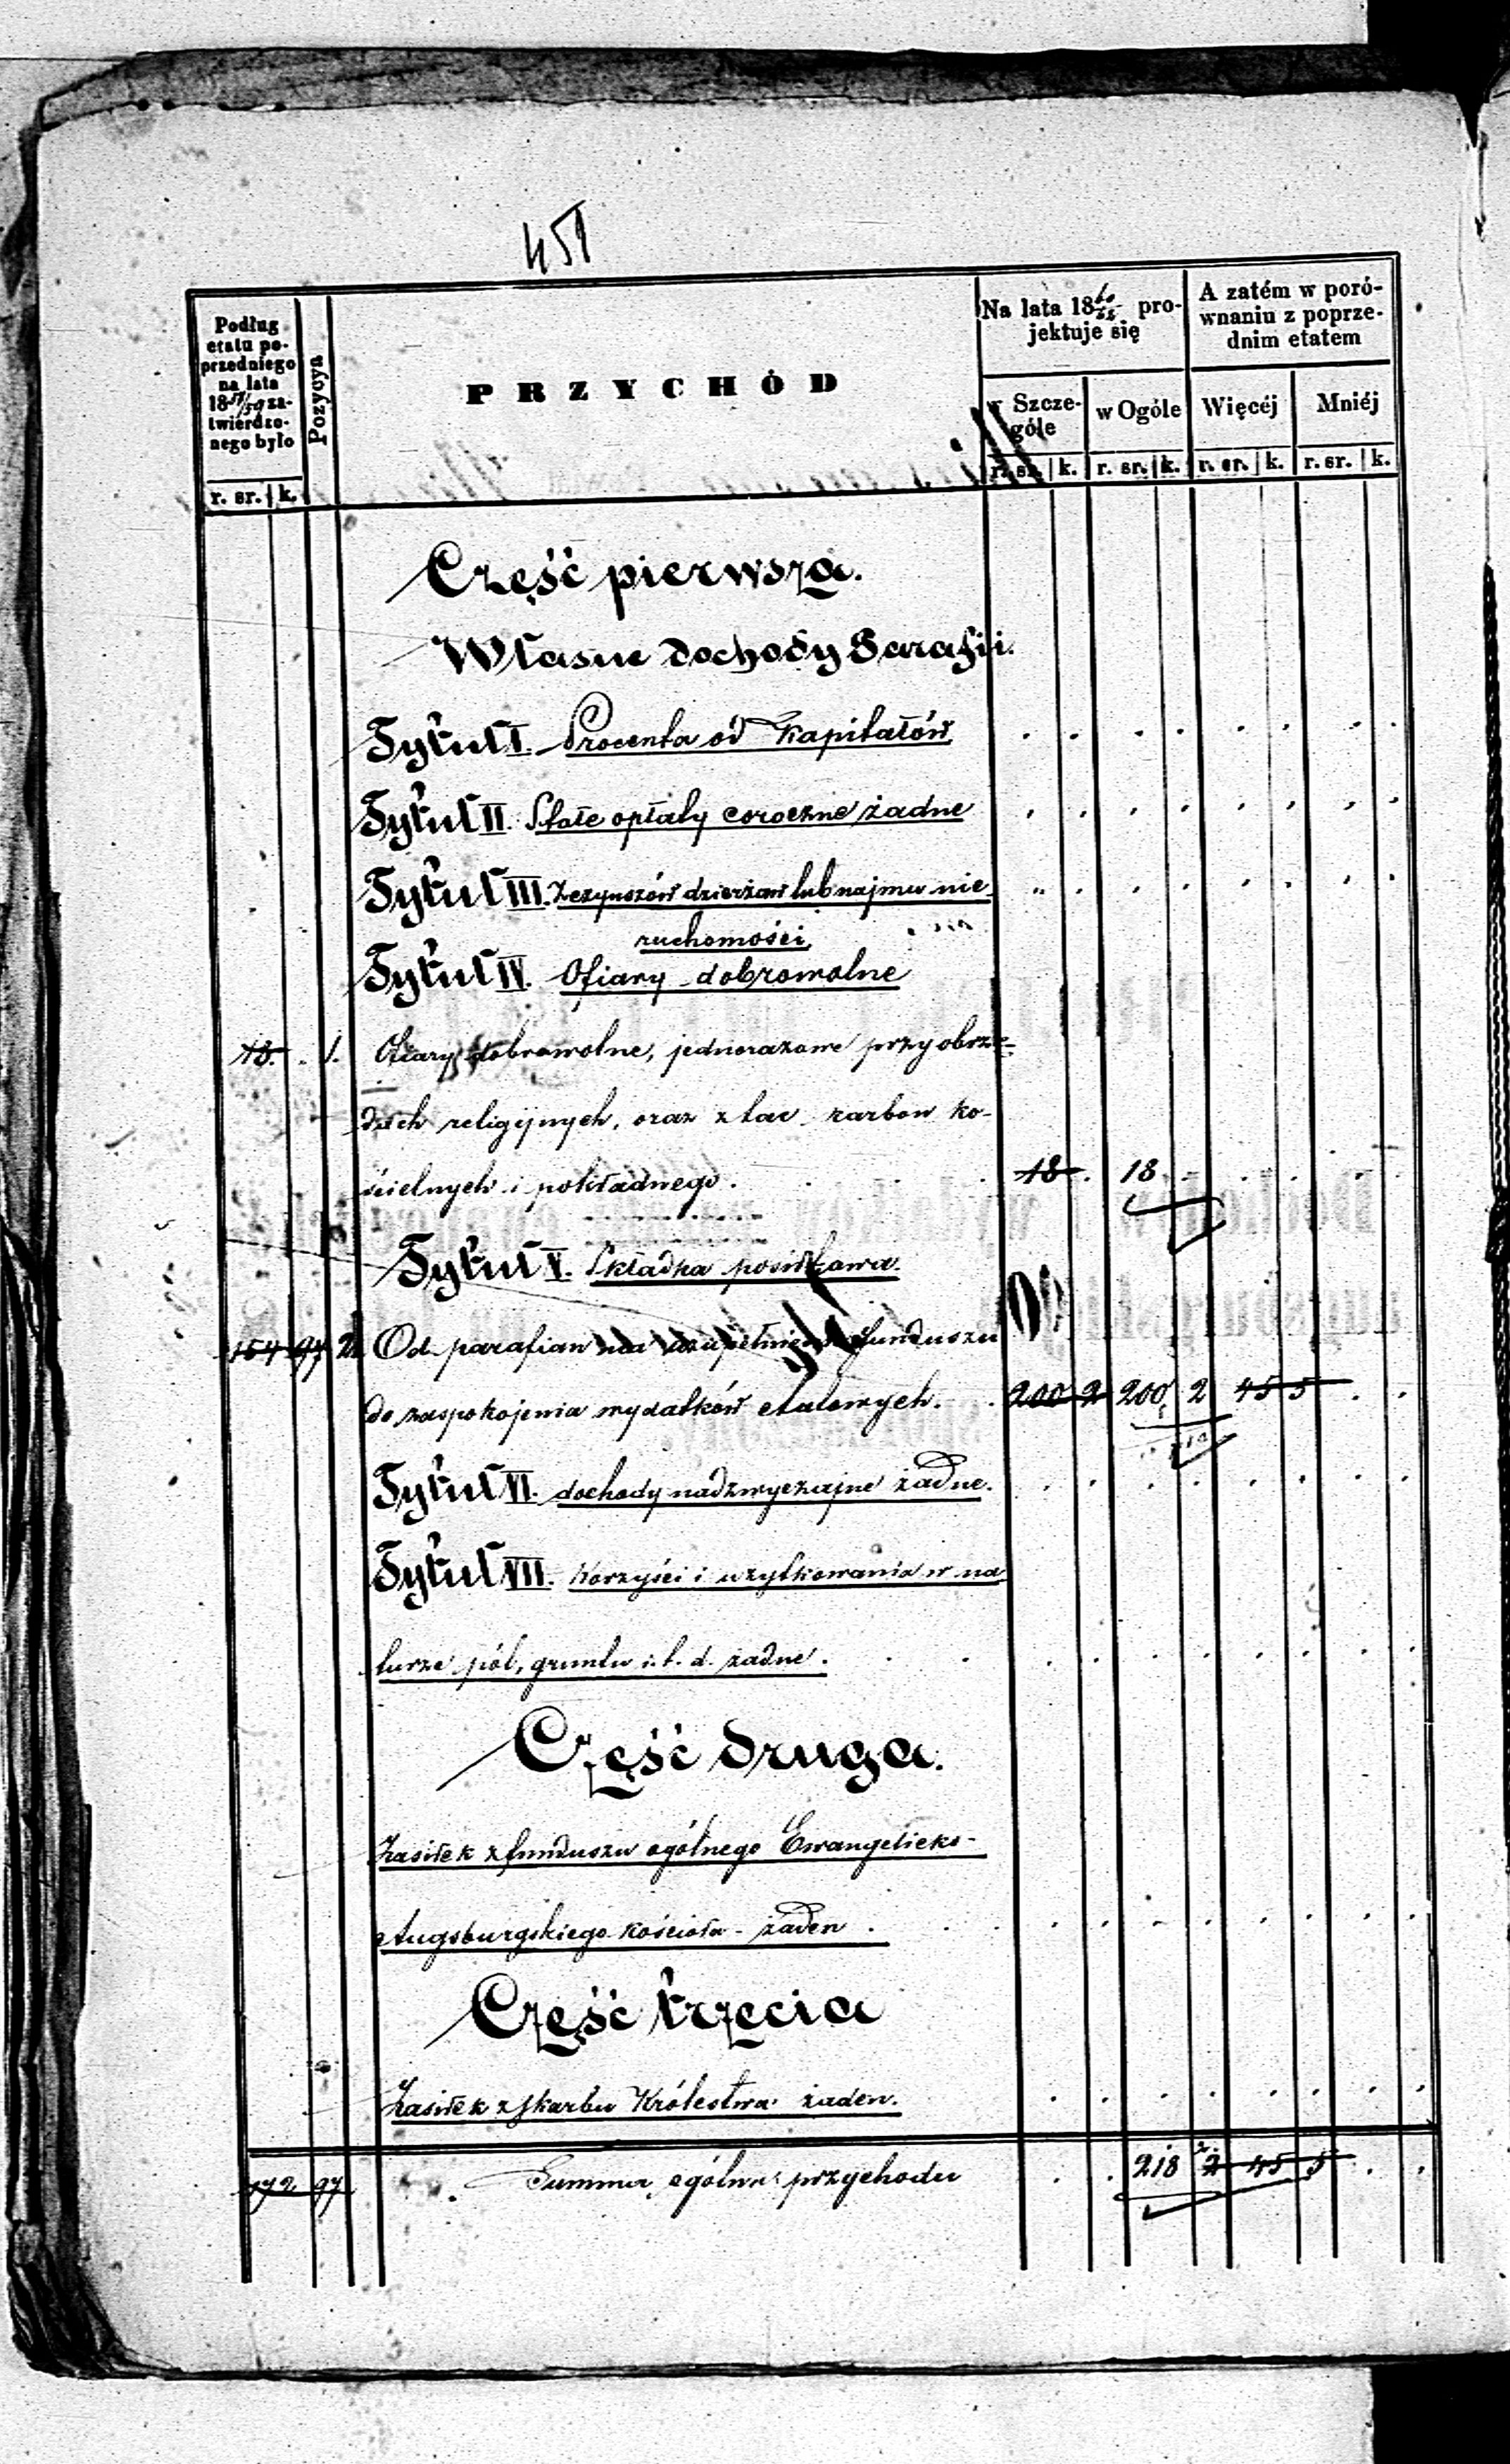 451
Podług
etatu po-
przedniego
na lata
1857/59 za-
twierdzo-
nego było
Pozycya
PRZYCHÓD
Na lata 1860/ pro-
jektuje się
A zatém w poró-
wnaniu z poprze-
dnim etatem
w Szcze-
góle
w Ogóle
Więcéj
Mniéj
r. sr. k.
r. sr. k.
r. sr. k.
r. sr. k.
r. sr. k.
Część pierwsza.
Własne dochody Parafii.
Tytuł I. Procenta od Kapitałów
Tytuł II. Stałe opłaty coroczne żadne
Tytuł III. Z czynszów dzierżaw lub najmu nie-
ruchomości
Tytuł IV. Ofiary dobrowolne
1. Ofiary dobrowolne, jednorazowe przy obrzę-
dach religijnych, oraz z tac skarbon ko-
ścielnych i pokładnego. 18 18
Tytuł V. Składka posiłkowa.
154 97 2. Od parafian na uzupełnienie funduszu
do zaspokojenia wydatków etatowych. 200 2 200 2 45 5
Tytuł VI. dochody nadzwyczajne żadne.
Tytuł VII. Korzyści i użytkowania w na
turze pól, gruntu i t. d. żadne.
Część druga.
Zasiłek z funduszu ogólnego Ewangelicko-
Augsburgskiego kościoła - żaden
Część trzecia
Zasiłek z skarbu Królestwa żaden.
172 97 Summa ogólna przychodu 218 2 45 5